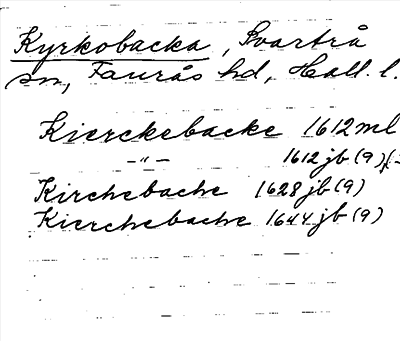 Kyrkobacka, Svartrå
sn, Faurås hd, Hall. l.
Kierckebacke 1612 ml
-"- 1612 jb (9)
Kirchebache 1628 jb (9)
Kierchebache 1644 jb (9)